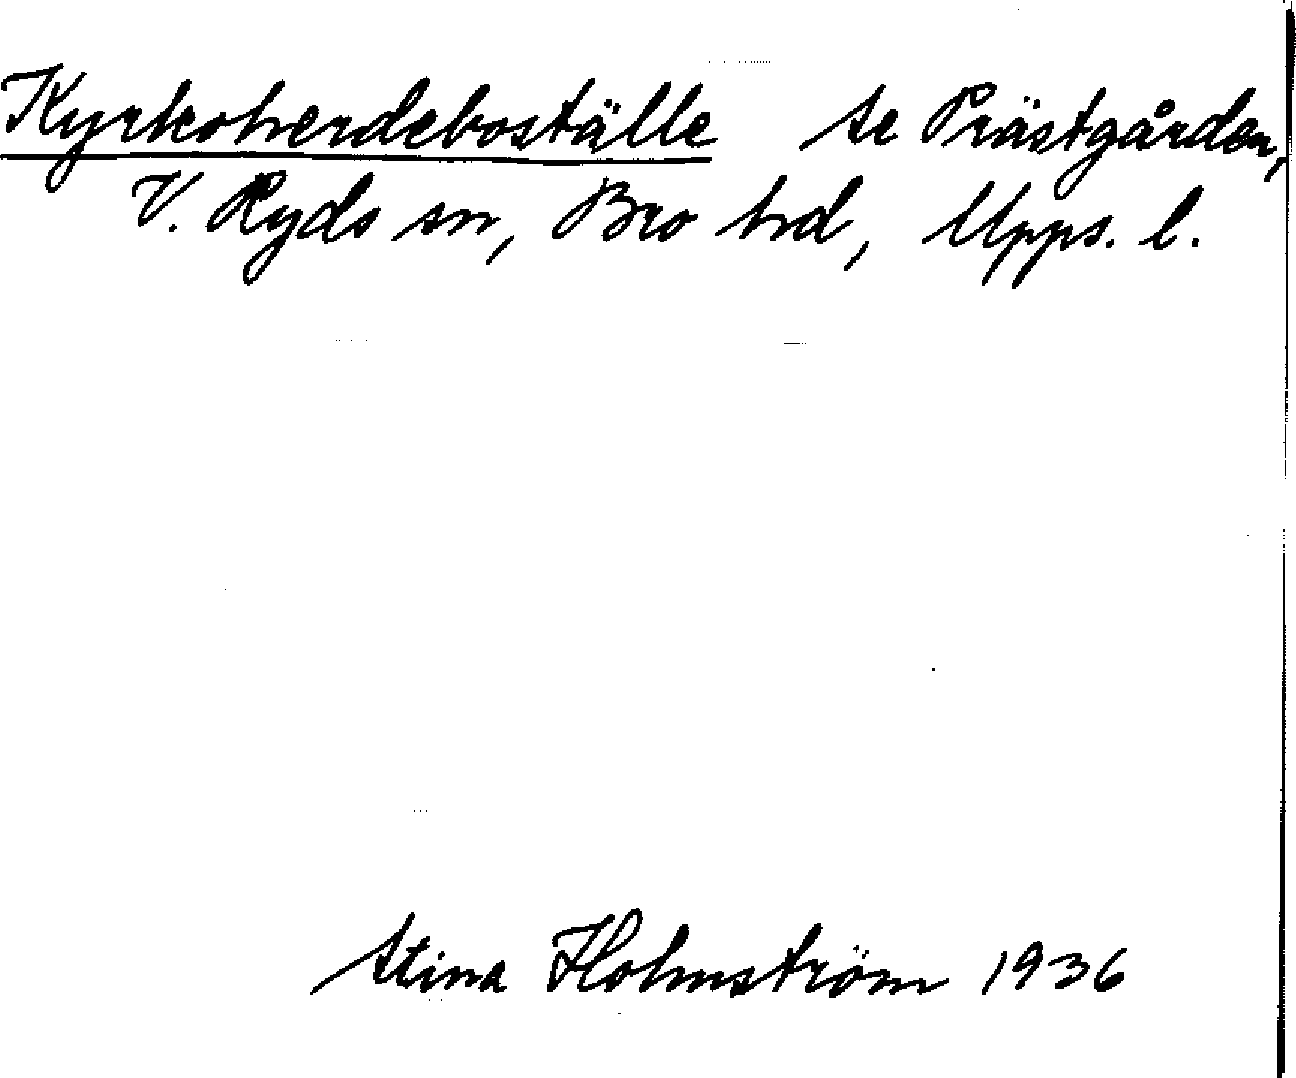 Kyrkoherdeboställe se Prästgården,
V. Ryds sn, Bro hd, Upps. l.
Stina Holmström 1936